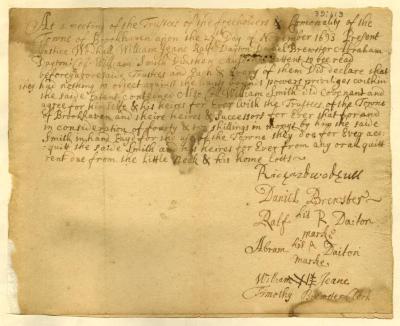 At a meeting of the Trustees of the freeholders & Comonality of the
Towne of Brookhaven upon the 25 day of November 1693 Present
Justice Woodhull William Jeane Ralf Dayton Daniel Brewster Abraham
Dayton Coll William Smith
before Trustees and Each & Every of them Did declare that
they hav nothing to object against the powers priviliges within
the saide Patent contained Also Coll William Smith Did Covenant and
agree for himselfe & his heires for Ever with the Trustees of the Towne
of Brookhaven and theire heires & Successors for Ever that for and
in consideration of fourty & two shillings in monys by him the saide
Smith in hand Payd for the use of the Towne they doe for Ever acc
quitt the saide Smith and his heires for Ever from any or all quitt
rent due from the Little Neck & his home Lotts
Rich Woodhull
Daniel Brewster
Ralf his R Daiton
marke
Abram his A Daiton
marke
William Jeane
Timothy Brewster Clerk